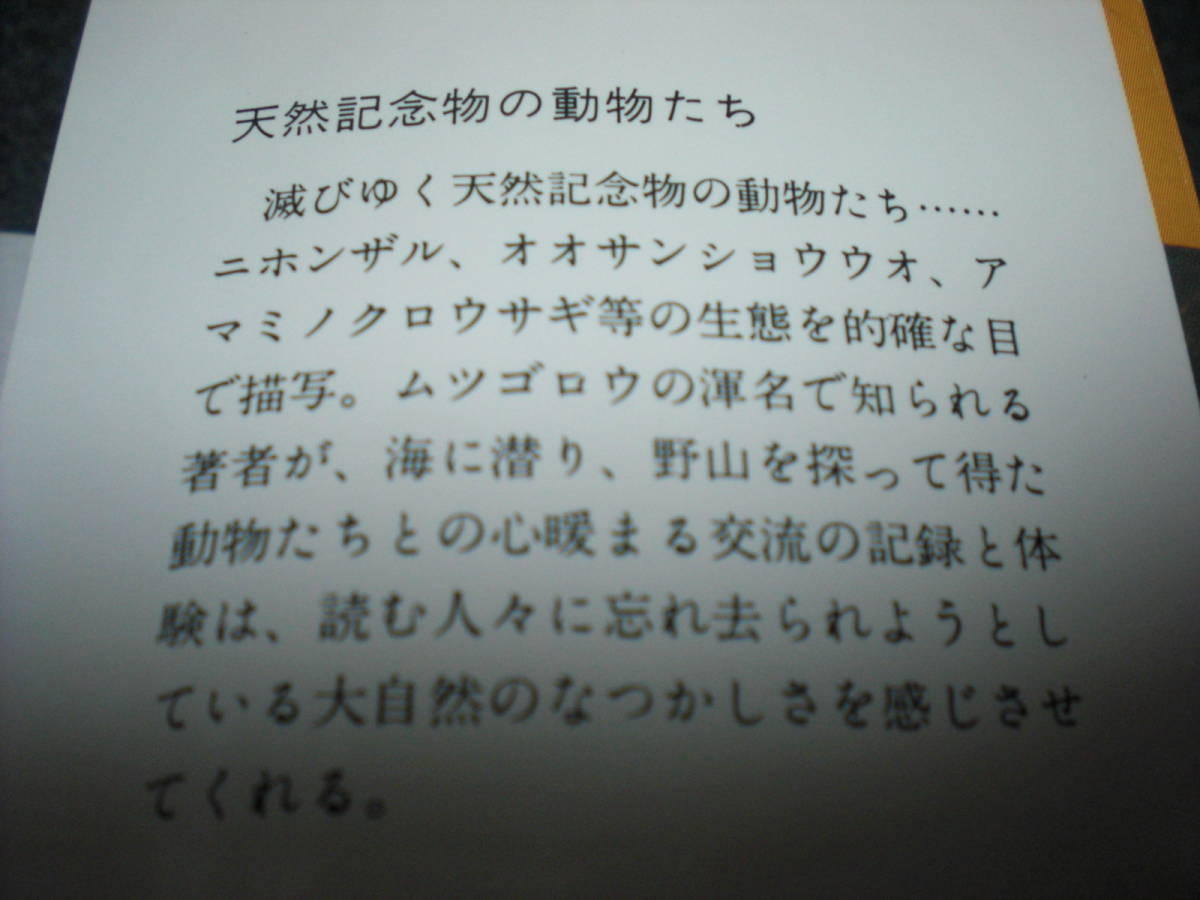 天然記念物の動物たち
滅びゆく天然記念物の動物たち……
ニホンザル、オオサンショウウオ、ア
マミノクロウサギ等の生態を的確な目
で描写。ムツゴロウの渾名で知られる
著者が、海に潜り、野山を探って得た
動物たちとの心暖まる交流の記録と体
験は、読む人々に忘れ去られようとし
ている大自然のなつかしさを感じさせ
てくれる。